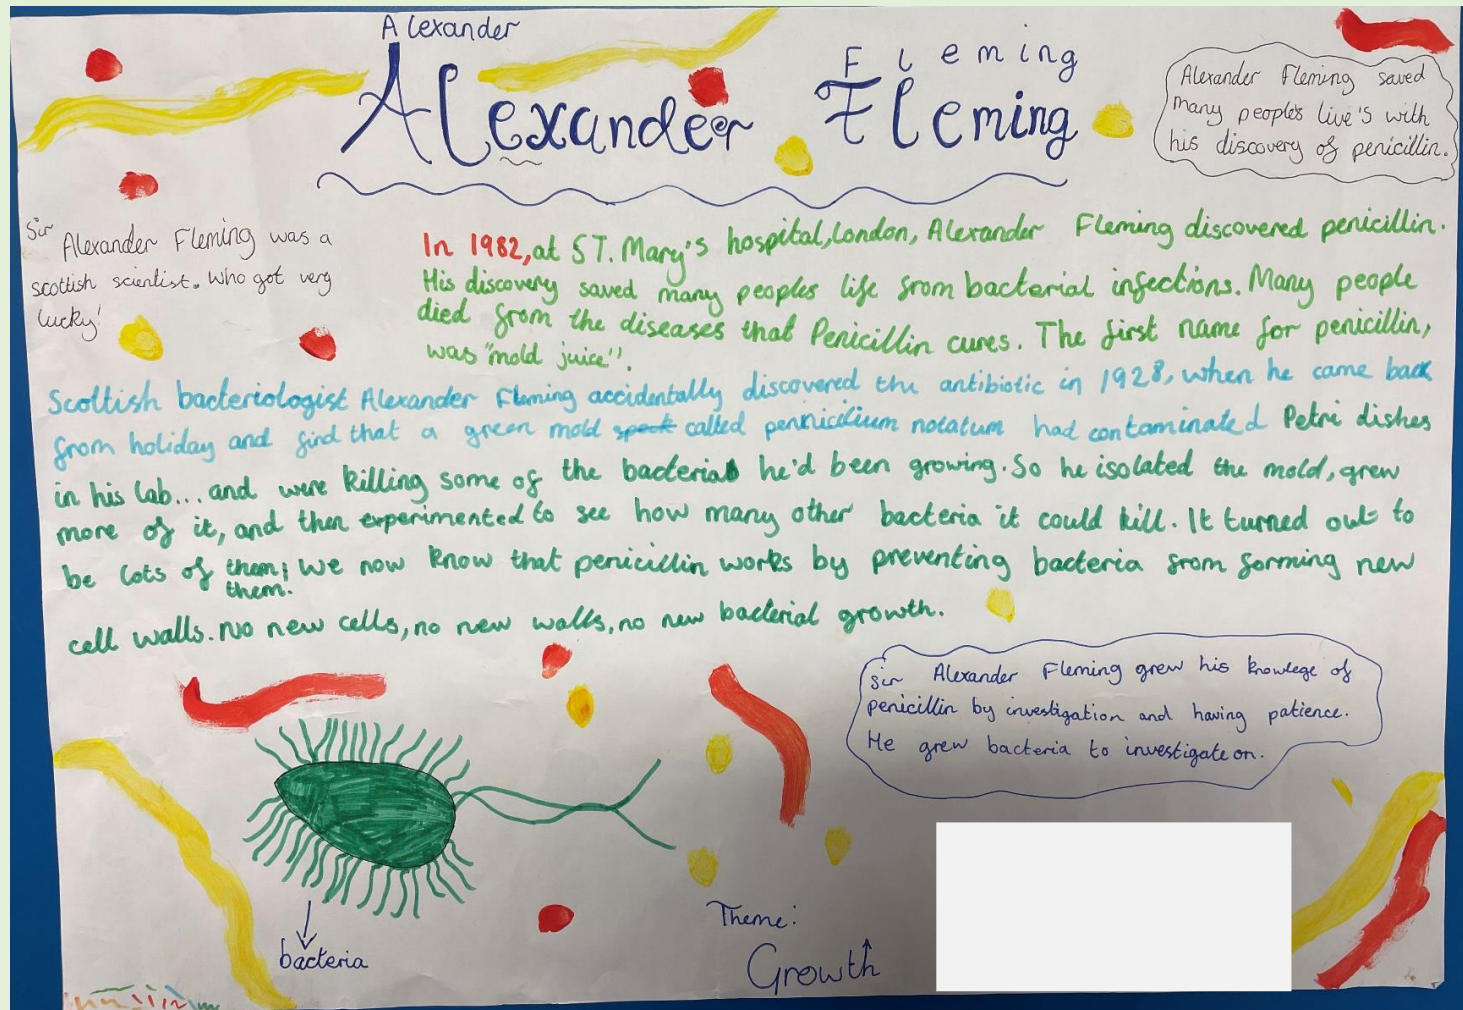 Alexander
Fleming
Alexander Fleming
Alexander Fleming saved
many people's live's with
his discovery of penicillin.
Sir Alexander Fleming was a
scottish scientist. Who got very
lucky!
In 1982, at ST. Mary's hospital, London, Alexander Fleming discovered penicillin.
His discovery saved many peoples life from bacterial infections. Many people
died from the diseases that Penicillin cures. The first name for penicillin,
was "mold juice"!
Scottish bacteriologist Alexander Fleming accidentally discovered the antibiotic in 1928, when he came back
from holiday and find that a green mold called pennicilium notatum had contaminated Petri dishes
in his lab... and were killing some of the bacteria he'd been growing. So he isolated the mold, grew
more of it, and then experimented to see how many other bacteria it could kill. It turned out to
be lots of them; We now know that penicillin works by preventing bacteria from forming new
them.
cell walls. No new cells, no new walls, no new bacterial growth.
Sir Alexander Fleming grew his knowlege of
penicillin by investigation and having patience.
He grew bacteria to investigate on.
bacteria
Theme:
Growth